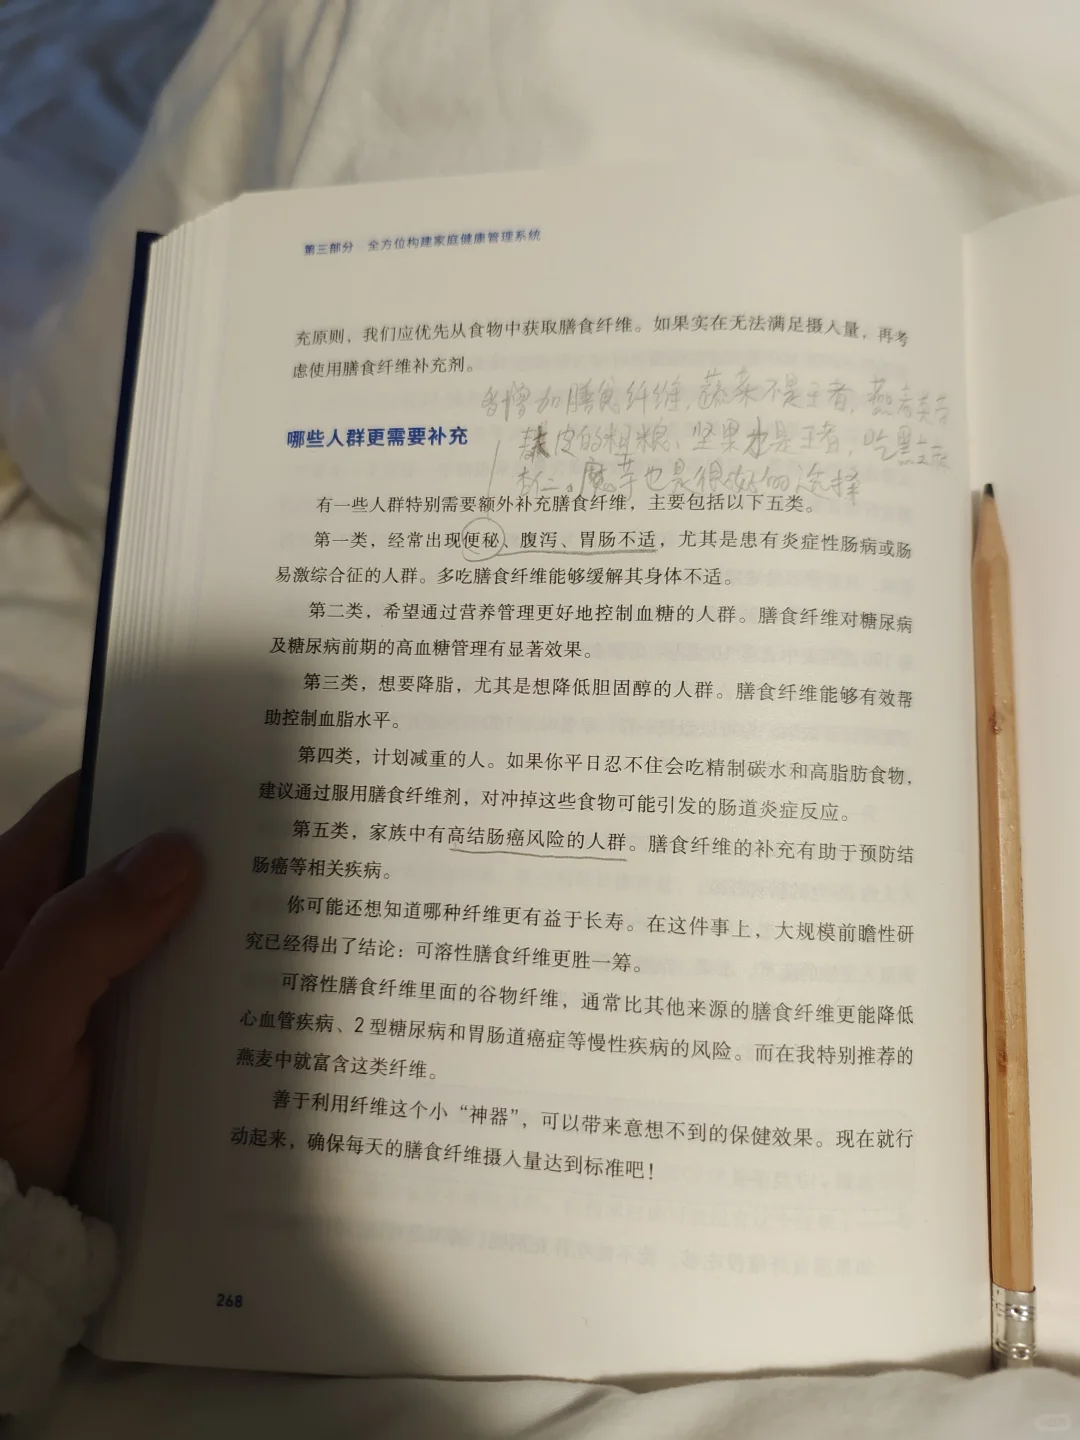 第三部分 全方位构建家庭健康管理系统
充原则，我们应优先从食物中获取膳食纤维。如果实在无法满足摄入量，再考
虑使用膳食纤维补充剂。
增加膳食纤维，蔬菜不是王者，燕麦
皮的粗粮、坚果也是王者，吃黑
杏仁。魔芋也是很好的选择
哪些人群更需要补充
有一些人群特别需要额外补充膳食纤维，主要包括以下五类。
第一类，经常出现便秘、腹泻、胃肠不适，尤其是患有炎症性肠病或肠
易激综合征的人群。多吃膳食纤维能够缓解其身体不适。
第二类，希望通过营养管理更好地控制血糖的人群。膳食纤维对糖尿病
及糖尿病前期的高血糖管理有显著效果。
第三类，想要降脂，尤其是想降低胆固醇的人群。膳食纤维能够有效帮
助控制血脂水平。
第四类，计划减重的人。如果你平日忍不住会吃精制碳水和高脂肪食物，
建议通过服用膳食纤维剂，对冲掉这些食物可能引发的肠道炎症反应。
第五类，家族中有高结肠癌风险的人群。膳食纤维的补充有助于预防结
肠癌等相关疾病。
你可能还想知道哪种纤维更有益于长寿。在这件事上，大规模前瞻性研
究已经得出了结论：可溶性膳食纤维更胜一筹。
可溶性膳食纤维里面的谷物纤维，通常比其他来源的膳食纤维更能降低
心血管疾病、2 型糖尿病和胃肠道癌症等慢性疾病的风险。而在我特别推荐的
燕麦中就富含这类纤维。
善于利用纤维这个小“神器”，可以带来意想不到的保健效果。现在就行
动起来，确保每天的膳食纤维摄入量达到标准吧！
268